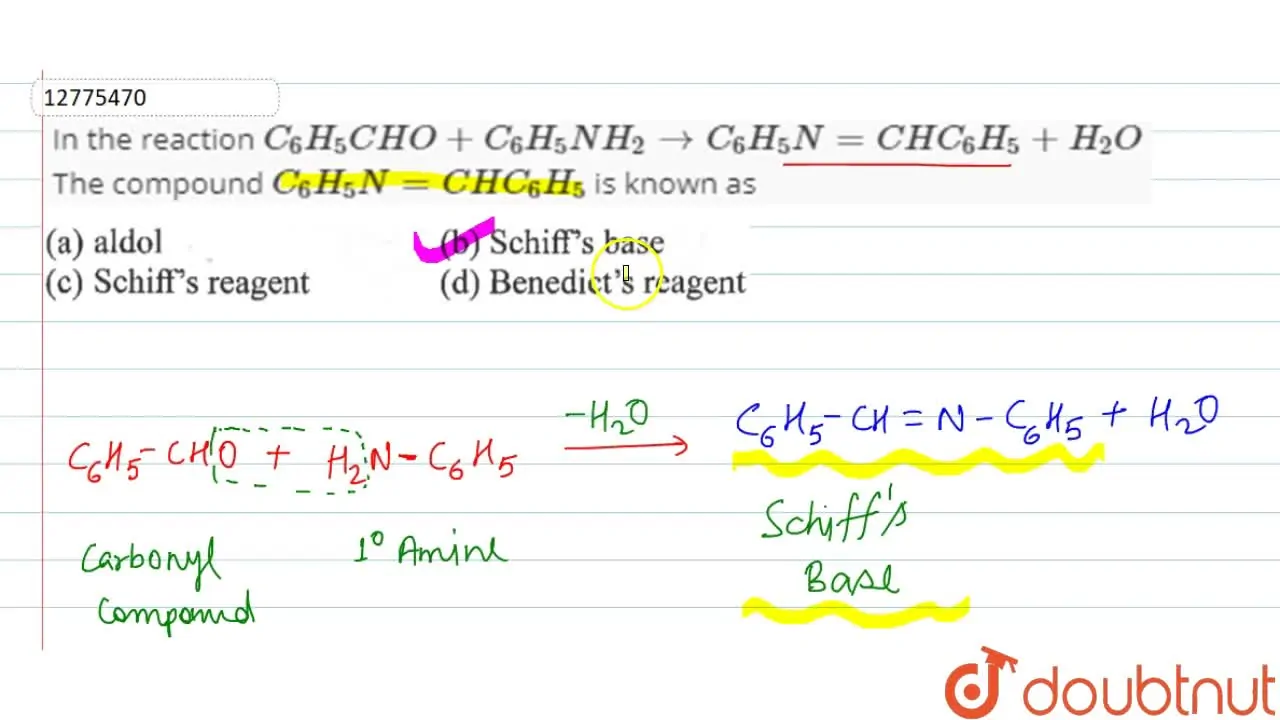 12775470
In the reaction C₆H₅CHO + C₆H₅NH₂ → C₆H₅N = CHC₆H₅ + H₂O
The compound C₆H₅N = CHC₆H₅ is known as
(a) aldol (b) Schiff's base
(c) Schiff's reagent (d) Benedict's reagent
C₆H₅-CHO + H₂N-C₆H₅ -H₂O → C₆H₅-CH=N-C₆H₅ + H₂O
Carbonyl Compound 1° Amine
Schiff's
Base
doubtnut